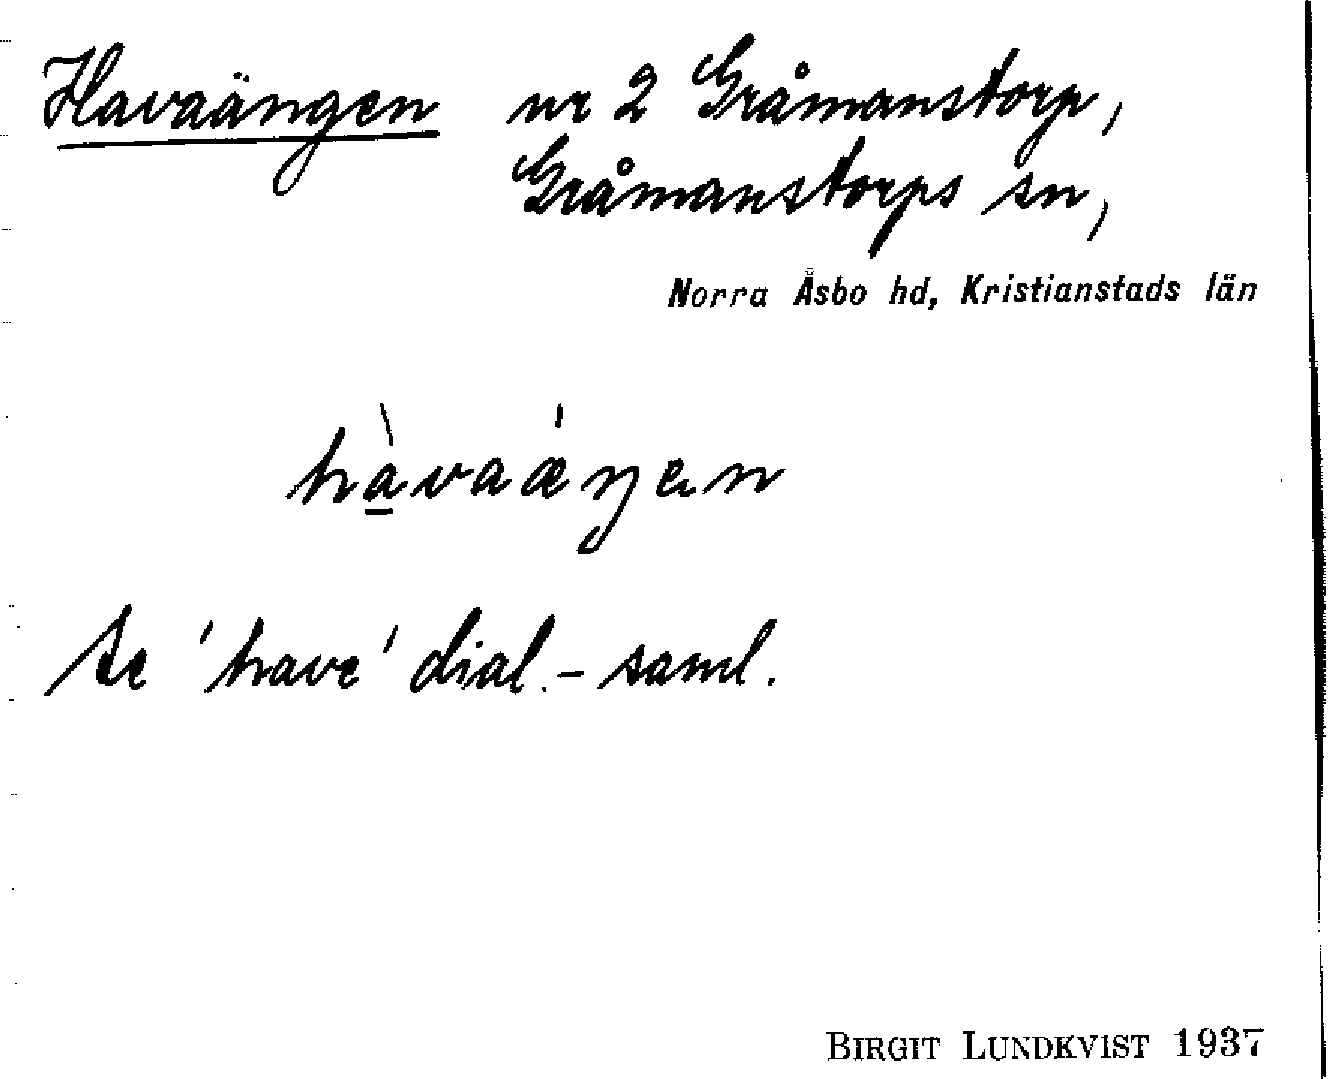 Havaängen nr 2 Gråmanstorp,
Gråmanstorps sn,
Norra Åsbo hd, Kristianstads län
hà̲vaǽŋen
Se 'have' dial.-saml.
BIRGIT LUNDKVIST 1937